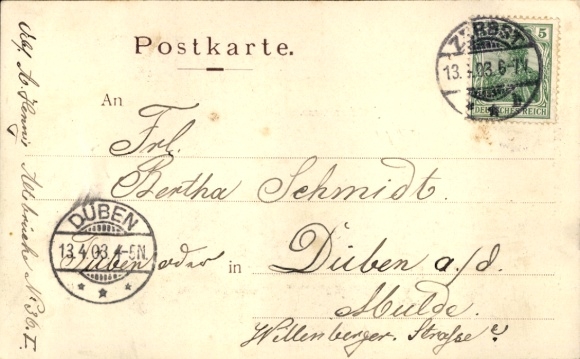 Postkarte.
ZERBST
13.4.03.6-7N.
5
DEUTSCHES REICH
An
Frl.
Bertha Schmidt.
DÜBEN
13.4.03.4-5N.
in Düben a./d.
Mulde.
Willenberger. Strasse
Altebrücke No. 36. I.